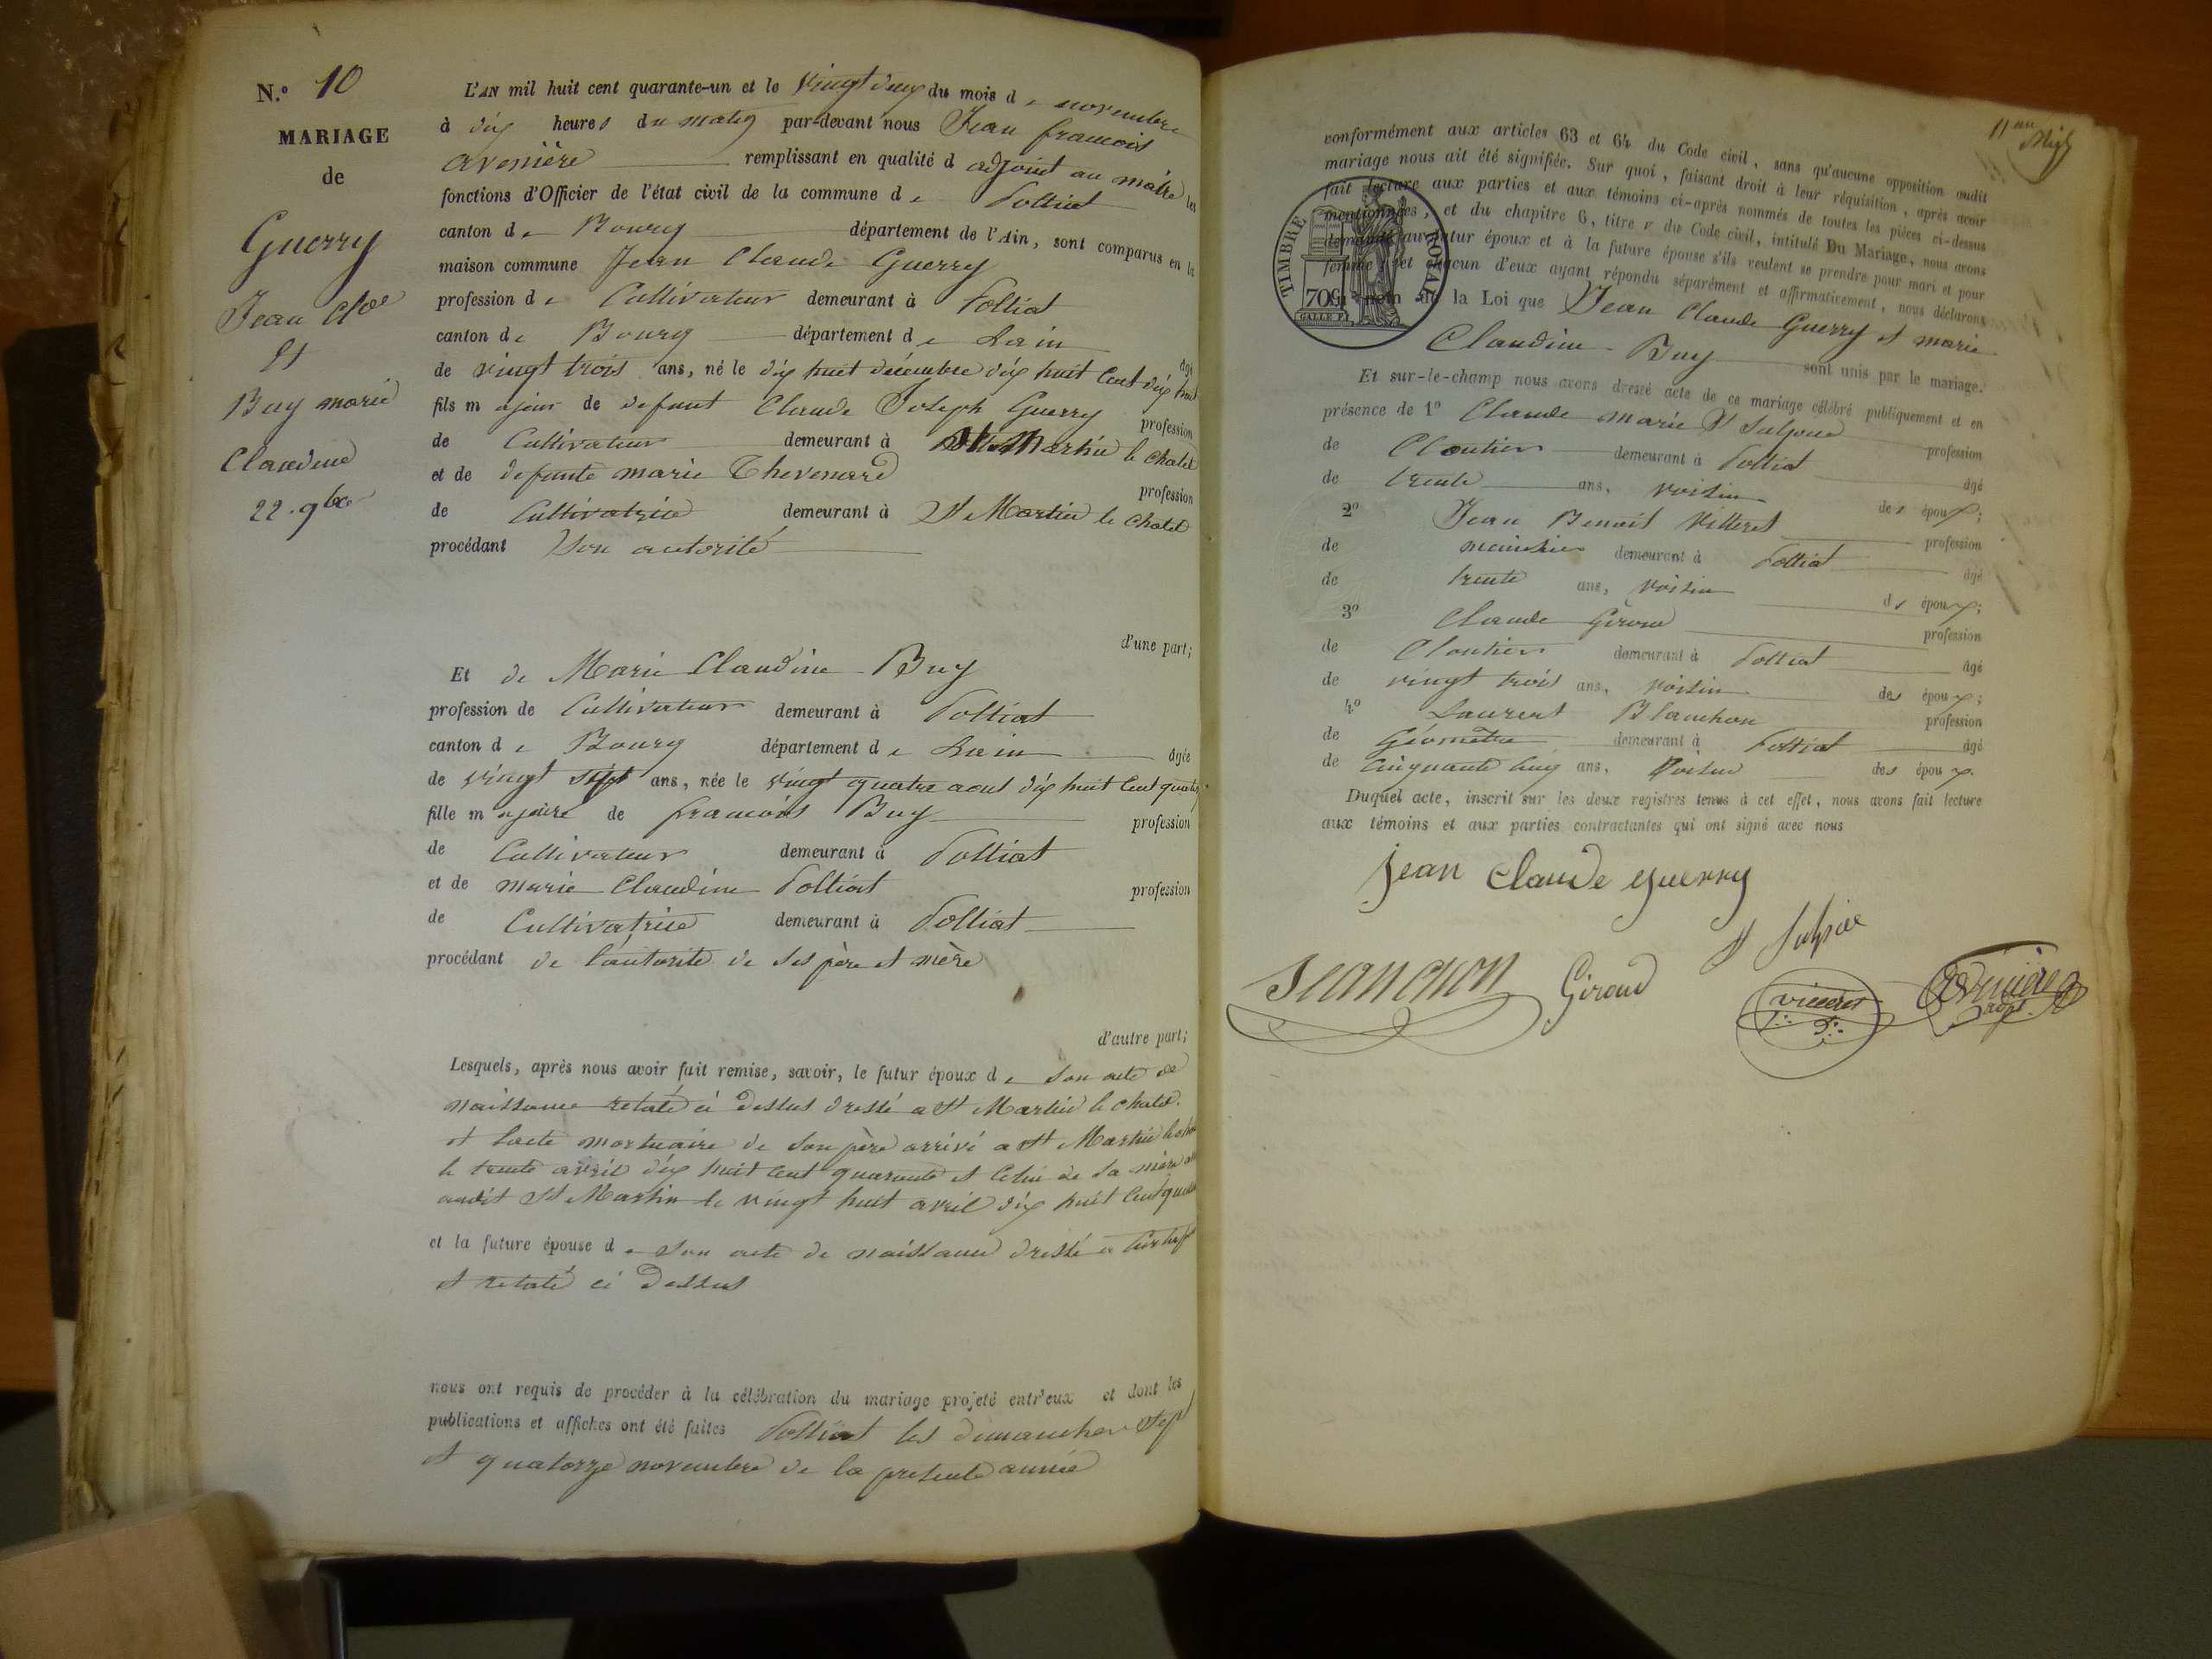 N.º 10
MARIAGE
de
Guerry
Jean Cl.de
et
Buy marie
Claudine
22. 9bre
L'AN mil huit cent quarante-un et le vingt deux du mois de novembre
à dix heures du matin par-devant nous Jean francois
avenière remplissant en qualité d adjoint au maire les
fonctions d'Officier de l'état civil de la commune de Polliat
canton de Bourg département de l'Ain, sont comparus en la
maison commune Jean Claude Guerry
profession de Cultivateur demeurant à Polliat
canton de Bourg département de Lain âgé
de vingt trois ans, né le dix huit décembre dix huit Cent dix huit
fils majeur de defunt Claude Joseph Guerry profession
de Cultivateur demeurant à St Martin le chatel
et de defunte marie Thevenard profession
de Cultivatrice demeurant à St Martin le chatel
procédant Son autorité
d'une part;
Et de Marie Claudine Buy
profession de Cultivateur demeurant à Polliat
canton de Bourg département de Lain âgée
de vingt sept ans, née le vingt quatre aout dix huit Cent quatorze
fille majeure de francois Buy profession
de Cultivateur demeurant à Polliat
et de marie Claudine Polliat profession
de Cultivatrice demeurant à Polliat
procédant de l'autorité de ses père et mère
d'autre part;
Lesquels, après nous avoir fait remise, savoir, le futur époux de Son acte de
naissance relaté ci dessus dressé a St Martin le chatel.
et lacte mortuaire de son père arrivé a St Martin
le trente avril dix huit cent quarante et Celui de sa mère
audit St Martin le vingt huit avril dix huit Cent
et la future épouse de son acte de naissance dressé a
et relaté ci dessus
nous ont requis de procéder à la célébration du mariage projeté entr'eux et dont les
publications et affiches ont été faites Polliat les dimanches sept
et quatorze novembre de la presente année
11
conformément aux articles 63 et 64 du Code civil, sans qu'aucune opposition audit
mariage nous ait été signifiée. Sur quoi, faisant droit à leur réquisition, après avoir
fait lecture aux parties et aux témoins ci-après nommés de toutes les pièces ci-dessus
mentionnées, et du chapitre 6, titre v du Code civil, intitulé Du Mariage, nous avons
demandé au futur époux et à la future épouse s'ils veulent se prendre pour mari et pour
femme; et chacun d'eux ayant répondu séparément et affirmativement, nous déclarons
au nom de la Loi que Jean Claude Guerry et marie
Claudine Buy sont unis par le mariage.
TIMBRE ROYAL
70 C.
GALLE F.
Et sur-le-champ nous avons dressé acte de ce mariage célébré publiquement et en
présence de 1º Claude marie St Sulpice profession
de Cloutier demeurant à Polliat âgé
de trente ans, voisin des époux;
2º Jean Benoit Villeret profession
de demeurant à Polliat âgé
de trente ans, voisin des époux;
3º Claude Giroud profession
de Cloutier demeurant à Polliat âgé
de vingt trois ans, voisin des époux;
4º Laurent Blanchon profession
de Géomètre demeurant à Polliat âgé
de Cinquante Cinq ans, voisin des époux.
Duquel acte, inscrit sur les deux registres tenus à cet effet, nous avons fait lecture
aux témoins et aux parties contractantes qui ont signé avec nous
jean claude guerry
St Sulpice
Giroud
villeret
avenière
adjt